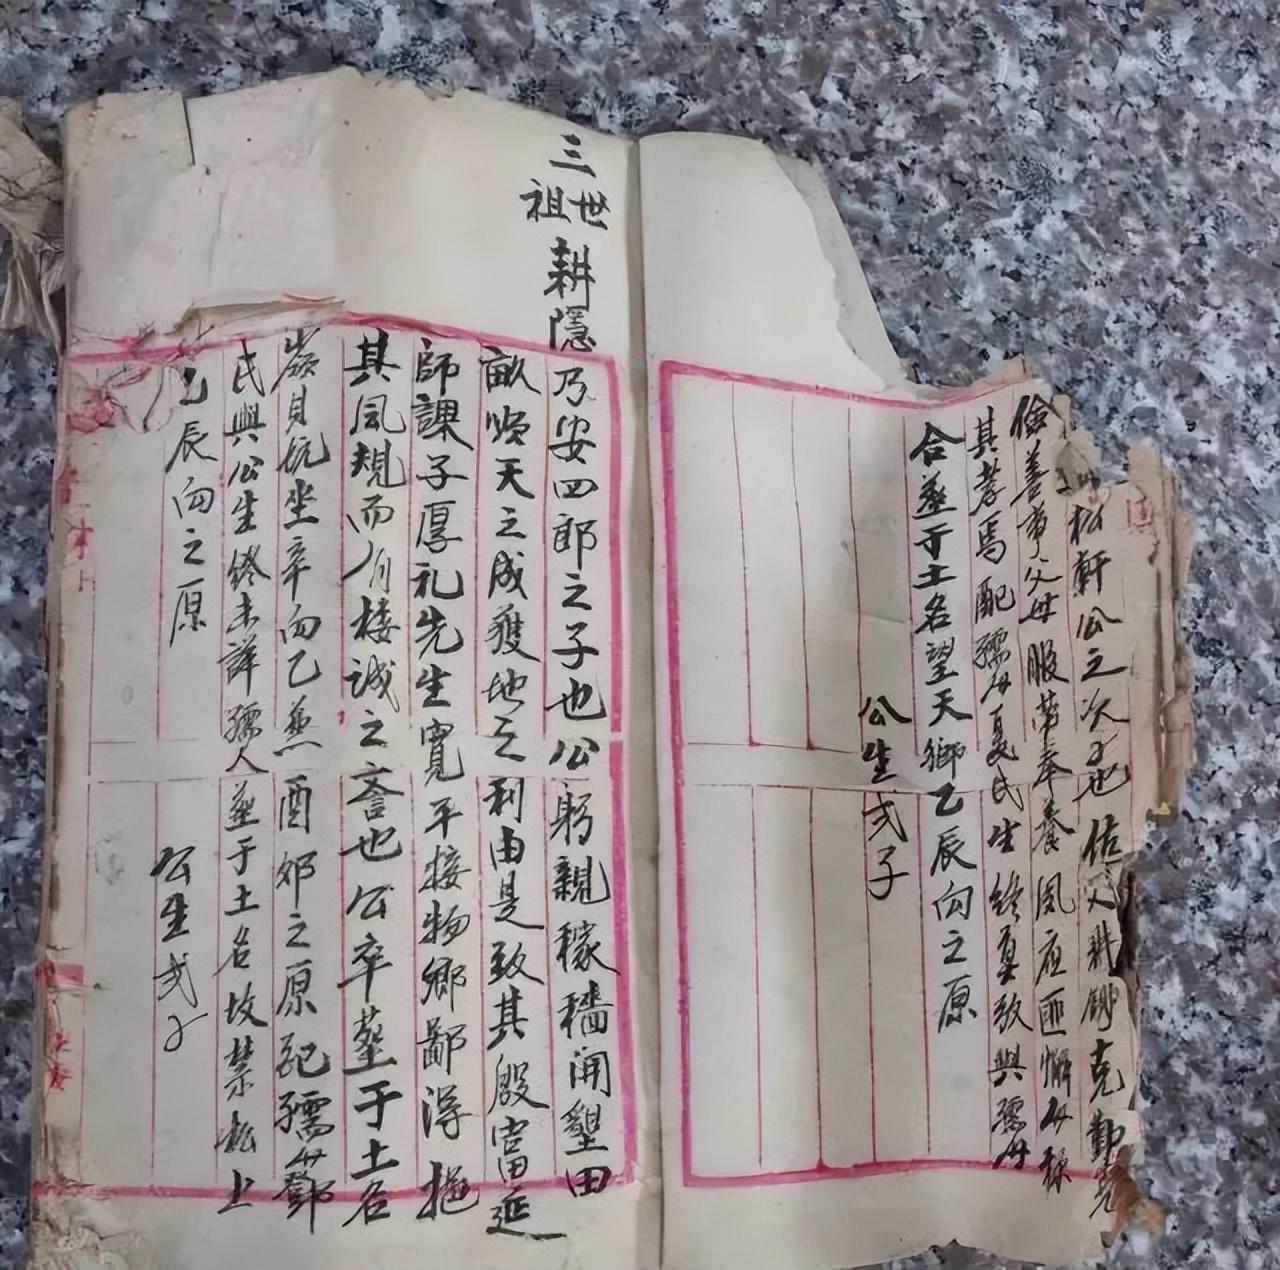 松軒公之次子也佐父耕鋤克勤克
儉善事父母服勞奉養夙夜匪懈母稱
其孝焉配孺母夏氏生終真致與孺母
合葬于土名望天鄉乙辰向之原
公生弍子
三世祖耕隱乃安四郎之子也公躬親稼穡開墾田
畝順天之成獲地之利由是致其殷富延
師課子厚礼先生寬平接物鄉鄙得
其風規而有接誠之斋也公卒塟于土名
嶺貝坑坐辛向乙兼酉卯之原配孺母鄧
氏與公生終未詳孺人塟于土名坟禁松上
乙辰向之原
公生弍子